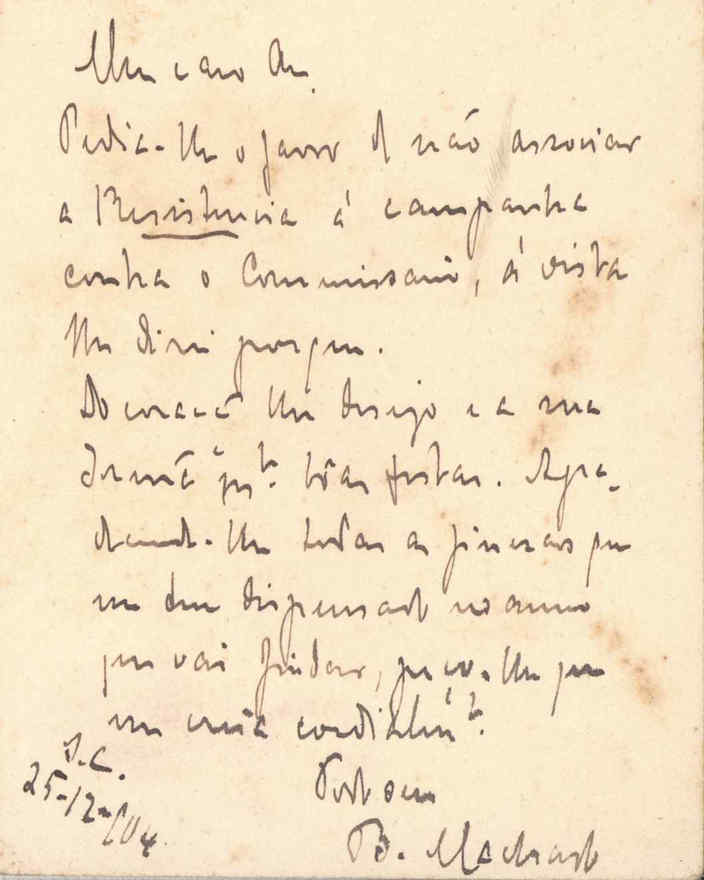 Meu caro Am.
Pedia-lhe o favor de não associar
a Resistencia á campanha
contra o Commissario, á vista
lhe direi porque.
Do coração lhe desejo e a sua
Ex.ma boas festas. Agra-
decendo-lhe todas as finezas que
me tem dispensado no anno
que vai findar, peço-lhe que
me creia cordialm.te
Todo seu
B. Machado
S.C.
25-12-904